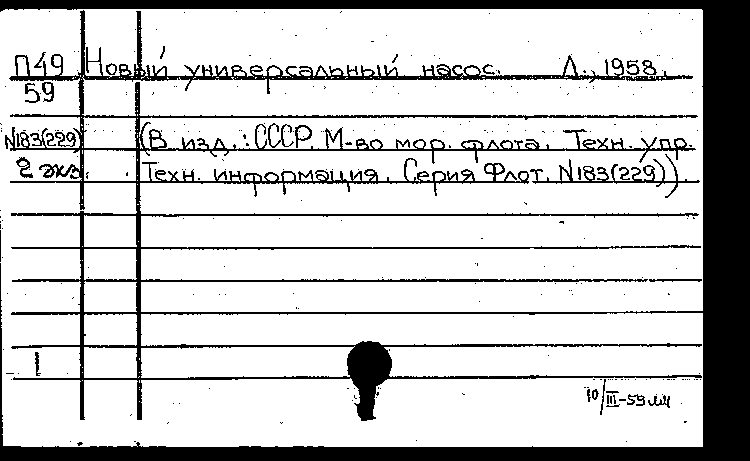 П49 Новый универсальный насос. Л., 1958.
59
N183(229) (В изд.: СССР. М-во мор. флота. Техн. упр.
2 экз. Техн. информация. Серия Флот. N183(229)).
1
10/III-59